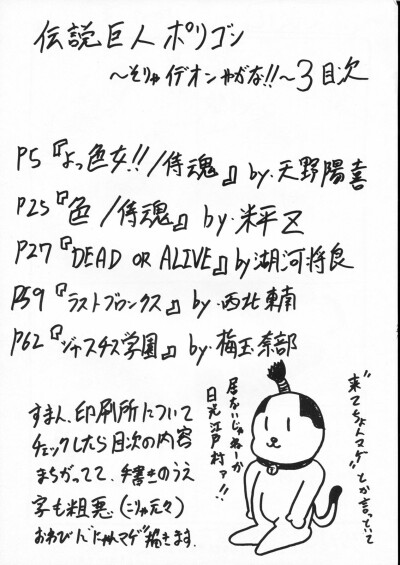 伝説巨人ポリゴン
〜そりゃイデオンやがな!!〜3目次
P5『よっ色女!!/侍魂』by.天野陽喜
P25『色/侍魂』by.米平区
P27『DEAD OR ALIVE』by湖河将良
P59『ラストブロンクス』by.西北東南
P62『ジャスチス学園』by.梅玉奈部
すまん、印刷所について
チェックしたら目次の内容
まちがってて、手書きのうえ
字も粗悪(こりゃ元々)
おわびに"にゃんマゲ"描きます。
"来てちょんマゲ"とか言っていて
居ないじゃねーか
日光江戸村ァ!!